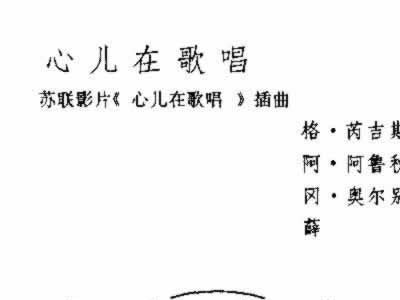 心儿在歌唱
苏联影片《 心儿在歌唱 》插曲
格·芮吉斯
阿·阿鲁秋
冈·奥尔别
薛